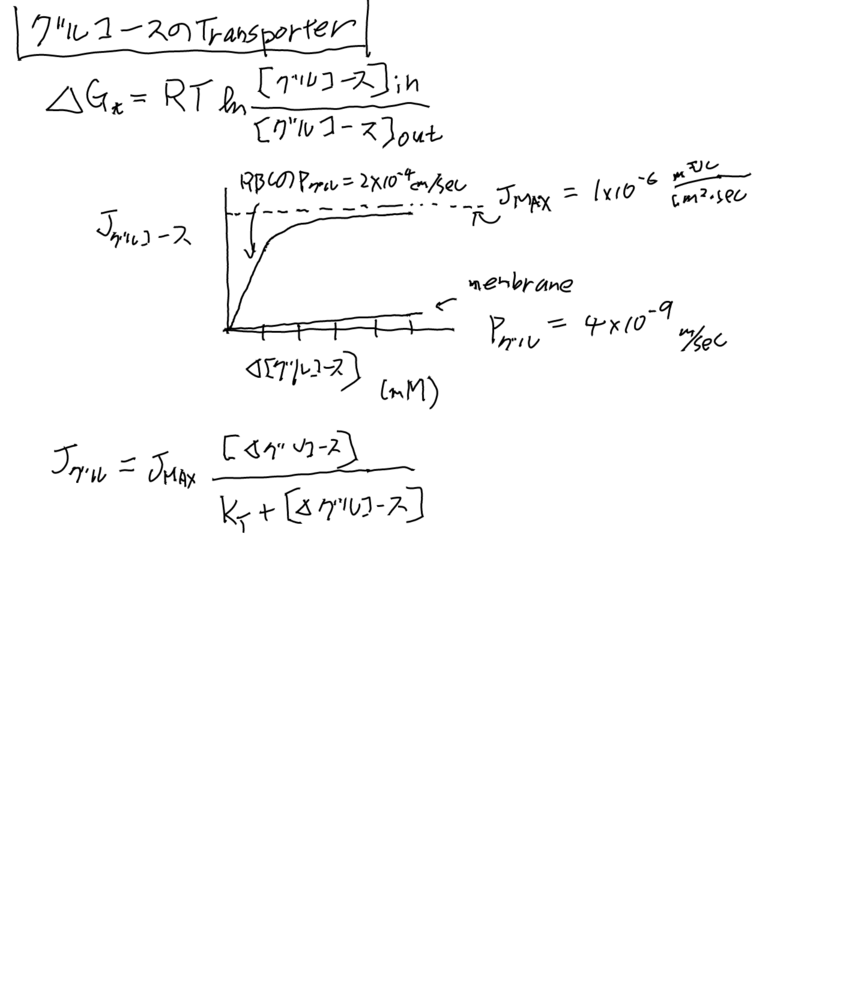 グルコースのTransporter
ΔGt = RT ln [グルコース]in / [グルコース]out
RBCのPグル = 2×10⁻⁴ cm/sec
JMAX = 1×10⁻⁶
cm²·sec
Jグルコース
menbrane
Pグル = 4×10⁻⁹ m/sec
Δ[グルコース]
(mM)
Jグル = JMAX [Δグルコース] / KT + [Δグルコース]